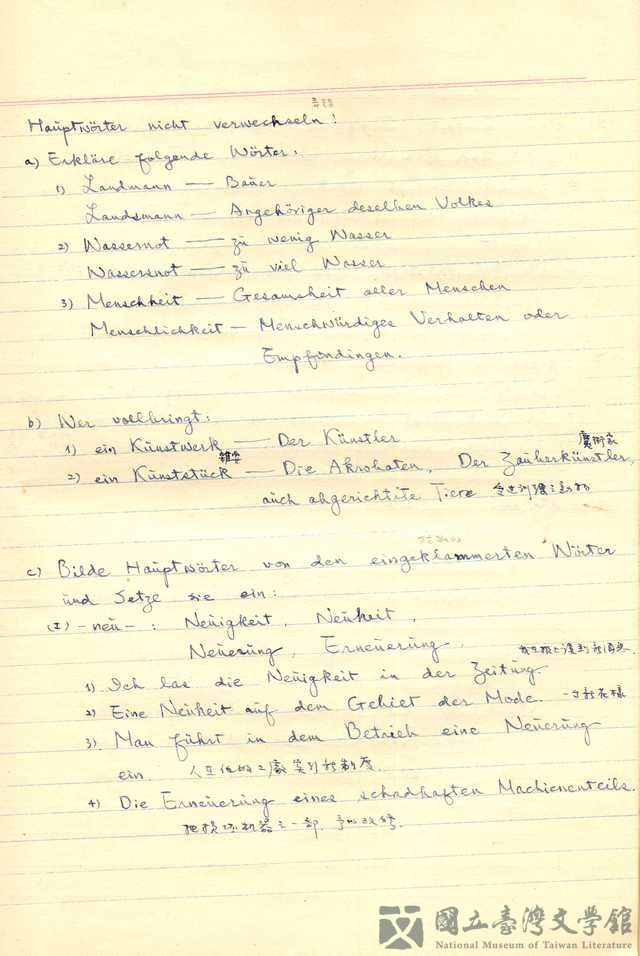 Hauptwörter nicht verwechseln!
a) Erkläre folgende Wörter:
1) Landmann — Bauer
Landsmann — Angehöriger deselben Volkes
2) Wassernot — zu wenig Wasser
Wassersnot — zu viel Wasser
3) Menschheit — Gesamtheit aller Menschen
Menschlichkeit — Menschwürdiges Verhalten oder
Empfindingen.
b) Wer vollbringt:
1) ein Kunstwerk — Der Künstler
魔術家
2) ein Kunststück — Die Akrobaten, Der Zauberkünstler,
auch abgerichtite Tiere
c) Bilde Hauptwörter von den eingeklammerten Wörter
und Setze sie ein:
(I) -neu- : Neuigkeit, Neuheit,
Neuerung, Erneuerung.
1) Ich las die Neuigkeit in der Zeitung.
2) Eine Neuheit auf dem Gebiet der Mode. 一寸新花樣
3) Man führt in dem Betrieb eine Neuerung
ein
4) Die Erneuerung eines schadhaften Machienenteils.
把損坏机器之一部,予以改修.
國立臺灣文學館
National Museum of Taiwan Literature